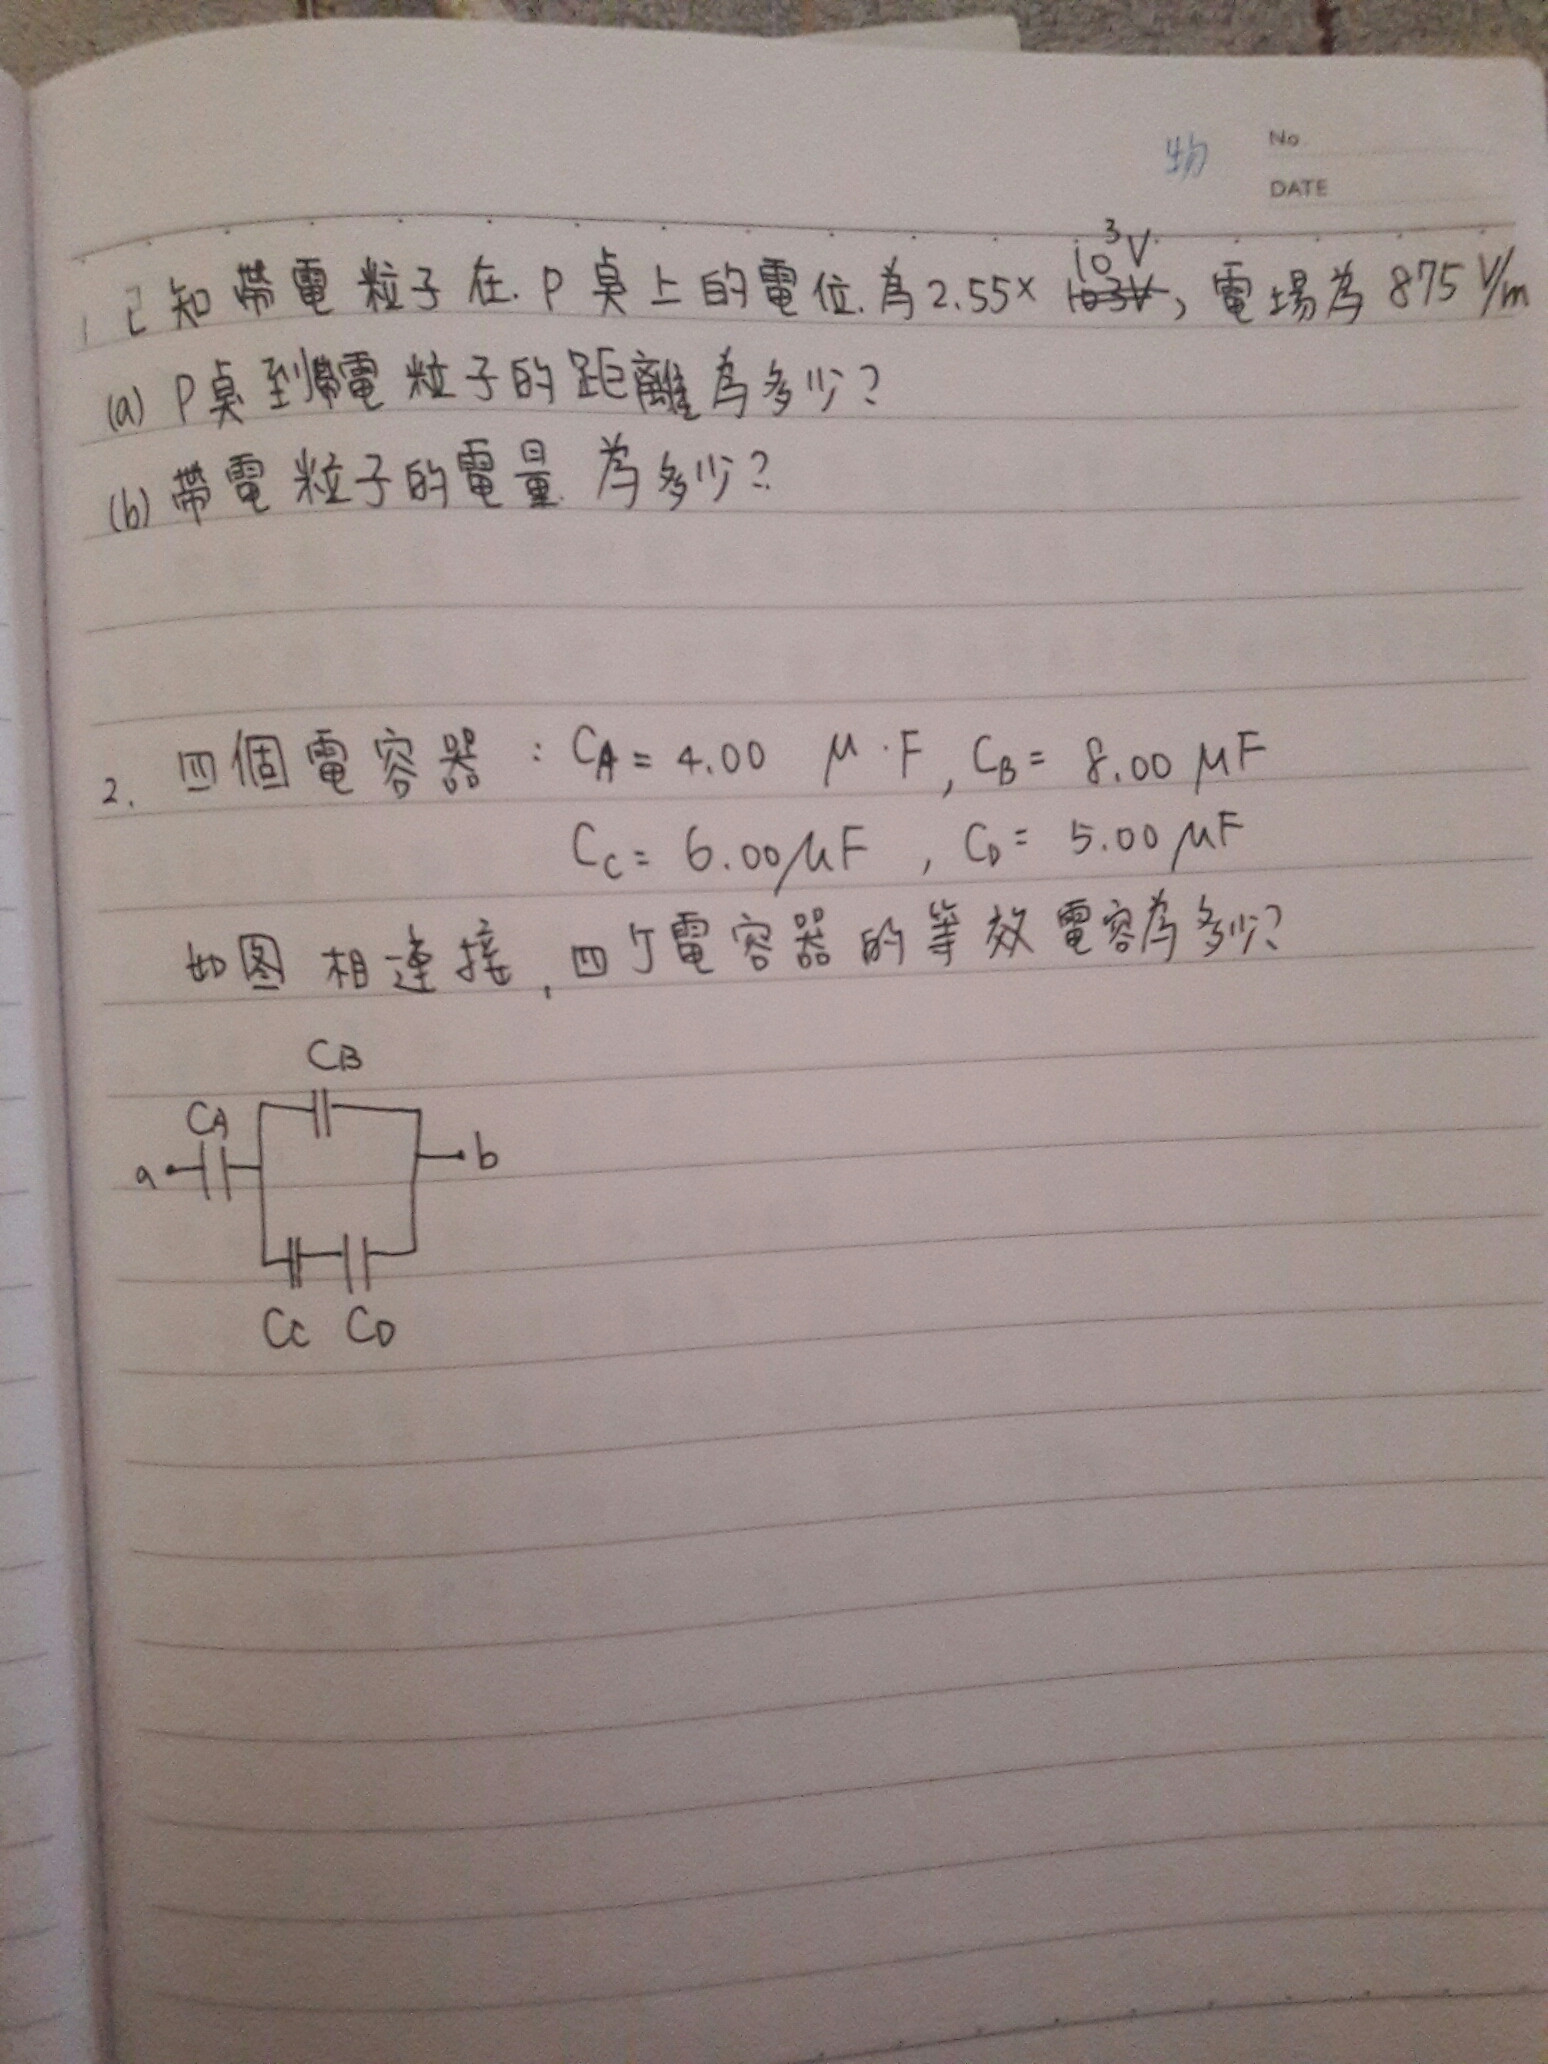 物
No.
DATE
1 已知帶電粒子在P桌上的電位為2.55×10³V, 電場為875 V/m
(a) P桌到帶電粒子的距離為多少?
(b) 帶電粒子的電量為多少?
2. 四個電容器 : CA = 4.00 μ·F, CB = 8.00 μF
CC = 6.00 μF , CD = 5.00 μF
如图相連接, 四个電容器的等效電容為多少?
CB
CA
a b
CC CD